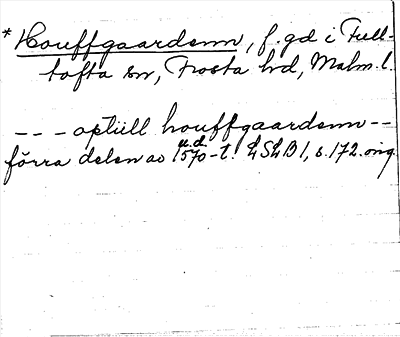 *Houffgaardenn, f. gd i Full-
tofta sn, Frosta hd, Malm. l.
--- optill houffgaardenn --
u.d.
förra delen av 1570-t. LSLB 1, s. 172. orig.